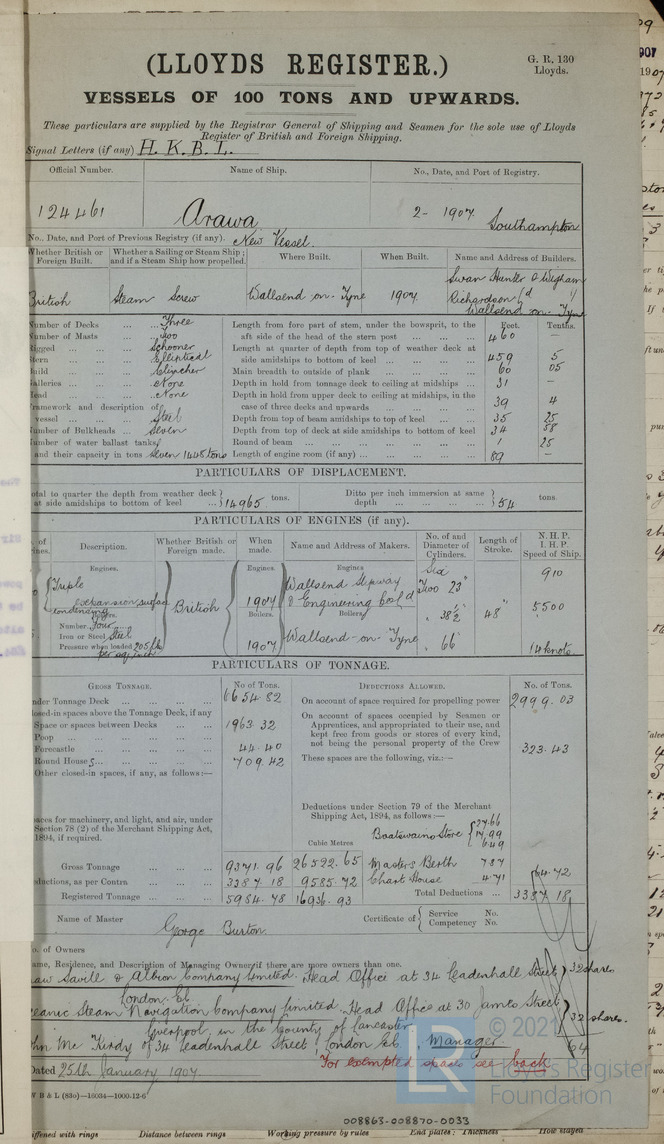 (LLOYDS REGISTER.)
G. R. 130
Lloyds.
VESSELS OF 100 TONS AND UPWARDS.
These particulars are supplied by the Registrar General of Shipping and Seamen for the sole use of Lloyds
Register of British and Foreign Shipping.
Signal Letters (if any) H. K. B. L.
Official Number. Name of Ship. No., Date, and Port of Registry.
124461 Arawa 2- 1907 Southampton
No., Date, and Port of Previous Registry (if any). New Vessel.
Whether British or Foreign Built. Whether a Sailing or Steam Ship; and if a Steam Ship how propelled. Where Built. When Built. Name and Address of Builders.
British Steam Screw Wallsend-on-Tyne 1907 Swan Hunter & Wigham
Richardson Ld
Wallsend on-Tyne
Feet. Tenths.
Number of Decks ... Three Length from fore part of stem, under the bowsprit, to the
Number of Masts ... Two aft side of the head of the stern post ... 460 —
Rigged ... Schooner Length at quarter of depth from top of weather deck at
Stern ... Elliptical side amidships to bottom of keel ... 459 5
Build ... Clincher Main breadth to outside of plank ... 60 05
Galleries ... None Depth in hold from tonnage deck to ceiling at midships ... 31 —
Head ... None Depth in hold from upper deck to ceiling at midships, in the
Framework and description of case of three decks and upwards ... 39 4
vessel ... Steel Depth from top of beam amidships to top of keel ... 35 25
Number of Bulkheads ... Seven Depth from top of deck at side amidships to bottom of keel 34 58
Number of water ballast tanks, Round of beam ... 1 25
and their capacity in tons Seven 1445 tons Length of engine room (if any) ... 89 —
PARTICULARS OF DISPLACEMENT.
Total to quarter the depth from weather deck at side amidships to bottom of keel ... 14965 tons. Ditto per inch immersion at same depth ... 54 tons
PARTICULARS OF ENGINES (if any).
of Description. Whether British or Foreign made. When made. Name and Address of Makers. No. of and Diameter of Cylinders. Length of Stroke. N. H. P. I. H. P. Speed of Ship.
Engines. Engines. Engines Six 910
Triple Wallsend Slipway Two 23"
expansion surface British 1907 & Engineering Co Ld " 38½" 48" 5500
condensing Boilers. Boilers
Number, Four
Iron or Steel Steel Wallsend-on-Tyne " 66"
Pressure when loaded 205 lbs 1907 14 knots
per sq inch
PARTICULARS OF TONNAGE.
GROSS TONNAGE. No of Tons. DEDUCTIONS ALLOWED. No. of Tons.
Under Tonnage Deck ... 6654.82 On account of space required for propelling power 2999.03
Closed-in spaces above the Tonnage Deck, if any On account of spaces occupied by Seamen or
Space or spaces between Decks ... 1963.32 Apprentices, and appropriated to their use, and
Poop ... kept free from goods or stores of every kind,
Forecastle ... 44.40 not being the personal property of the Crew 323.43
Round Houses ... 709.42 These spaces are the following, viz.:—
Other closed-in spaces, if any, as follows:—
Spaces for machinery, and light, and air, under Deductions under Section 79 of the Merchant
Section 78 (2) of the Merchant Shipping Act, Shipping Act, 1894, as follows:—
1894, if required. Boatswains Store
Cubic Metres
Gross Tonnage ... 9371.96 26522.65 Masters Berth 7.87
Deductions, as per Contra ... 3387.18 9585.72 Chart House 4.71 64.72
Registered Tonnage ... 5984.78 16936.93 Total Deductions ... 3387.18
Name of Master Certificate of Service No.
George Burton Competency No.
No. of Owners
Name, Residence, and Description of Managing Owner if there are more owners than one.
Shaw Savill & Albion Company Limited. Head Office at 34 Leadenhall Street 32 shares
London. EC
Oceanic Steam Navigation Company Limited, Head Office at 30 James Street
Liverpool, in the County of Lancaster 32 shares.
John Mc Kirdy of 34 Leadenhall Street, London EC. Manager. 64
For exempted spaces see back
Dated 25th January 1907.
W B & L (83o)—16034—1000-12-6
LR
© 2021
Lloyd's Register
Foundation
008863-008870-0033
Stiffened with rings Distance between rings Working pressure by rules End plates: Thickness How stayed